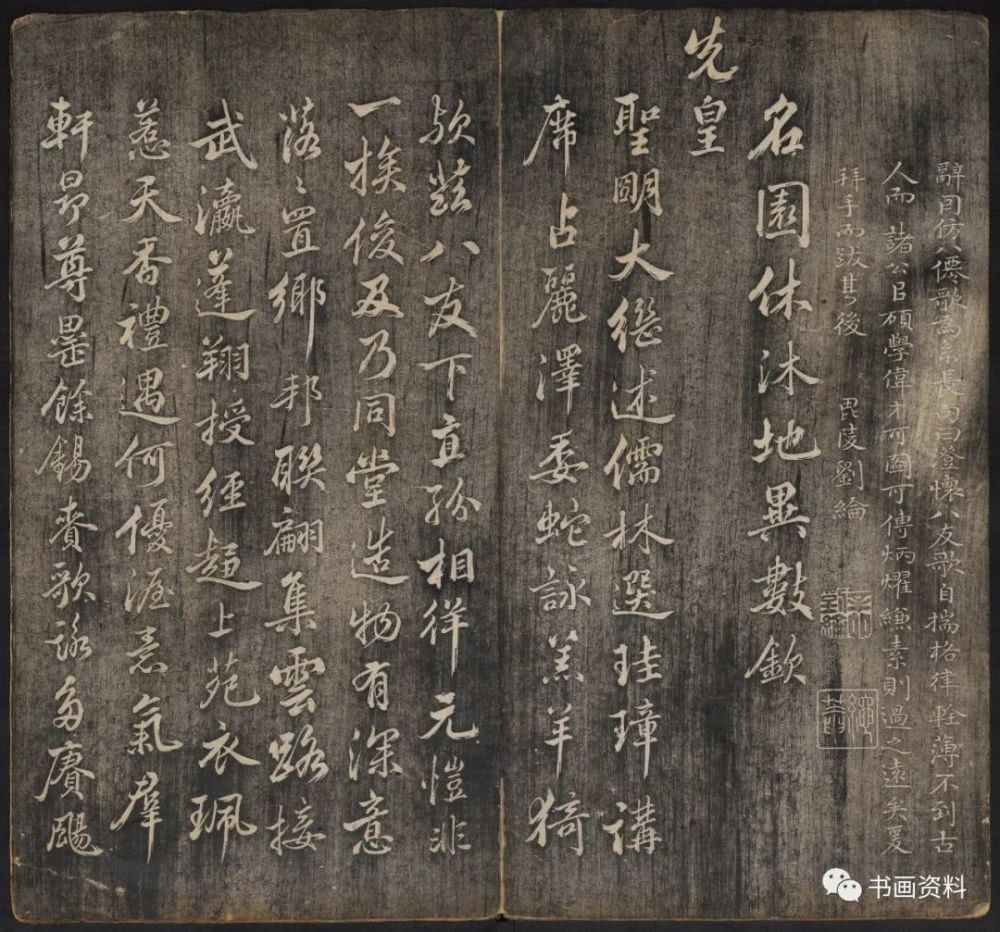 辭間仿八僊歌為系長句曰澄懷八友歌自揣格律輕薄不到古
人而諸公官碩學偉才可圖可傳炳燿縑素則過之遠矣爰
拜手而跋其後 毘陵劉綸
名園休沐地異數欽
先皇
聖明大繼述儒林選珪璋講
席占麗澤委蛇詠羔羊猗
歟茲八友下直矜相徉元愷非
一族俊及乃同堂造物有深意
落〻置鄉邦聯翩集雲路接
武瀛蓬翔授經趨上苑衣珮
惹天香禮遇何優渥意氣羣
軒昂尊罍餘錫賚歌詠多賡颺
书画资料